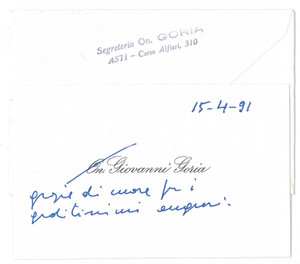 Segreteria On. GORIA
ASTI - Corso Alfieri, 310
15-4-91
On. Giovanni Goria
grazie di cuore per i
graditissimi auguri.